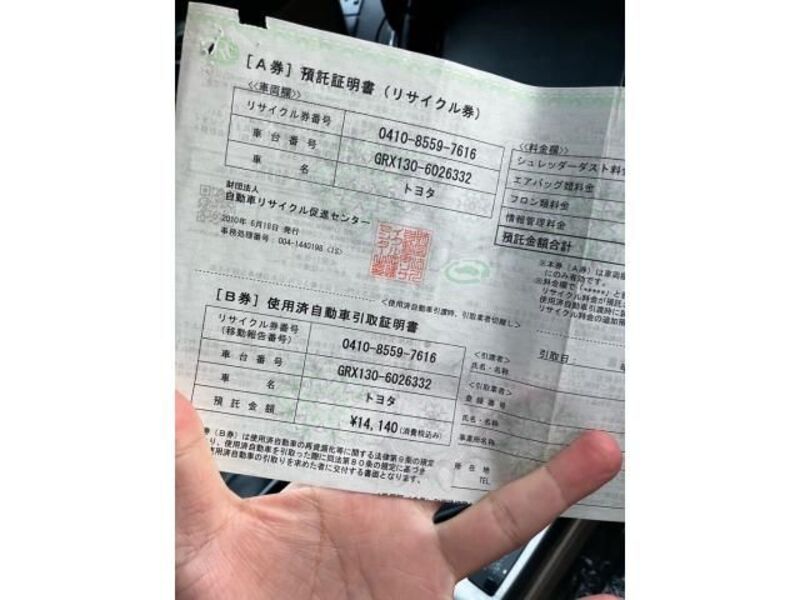 [A券] 預託証明書 (リサイクル券)
<<車両欄>>
リサイクル券番号 0410-8559-7616
車台番号 GRX130-6026332
車名 トヨタ
<<料金欄>>
シュレッダーダスト料金
エアバッグ類料金
フロン類料金
情報管理料金
預託金額合計
財団法人
自動車リサイクル促進センター
2010年 6月19日 発行
事務処理番号:004-1440198
※本券(A券)は車両
にのみ有効です。
<使用済自動車引渡時、引取業者切離し>
[B券] 使用済自動車引取証明書
リサイクル券番号
(移動報告番号) 0410-8559-7616
車台番号 GRX130-6026332
車名 トヨタ
預託金額 ¥14,140(消費税込み)
<引渡者>
氏名・名称
引取日:
<引取業者>
登録番号
氏名・名称
事業所名称
所在地
TEL
券(B券)は使用済自動車の再資源化等に関する法律第9条の規定
り、使用済自動車を引取った際に同法第80条の規定に基づき
使用済自動車の引取りを求めた者に交付する書面となります。